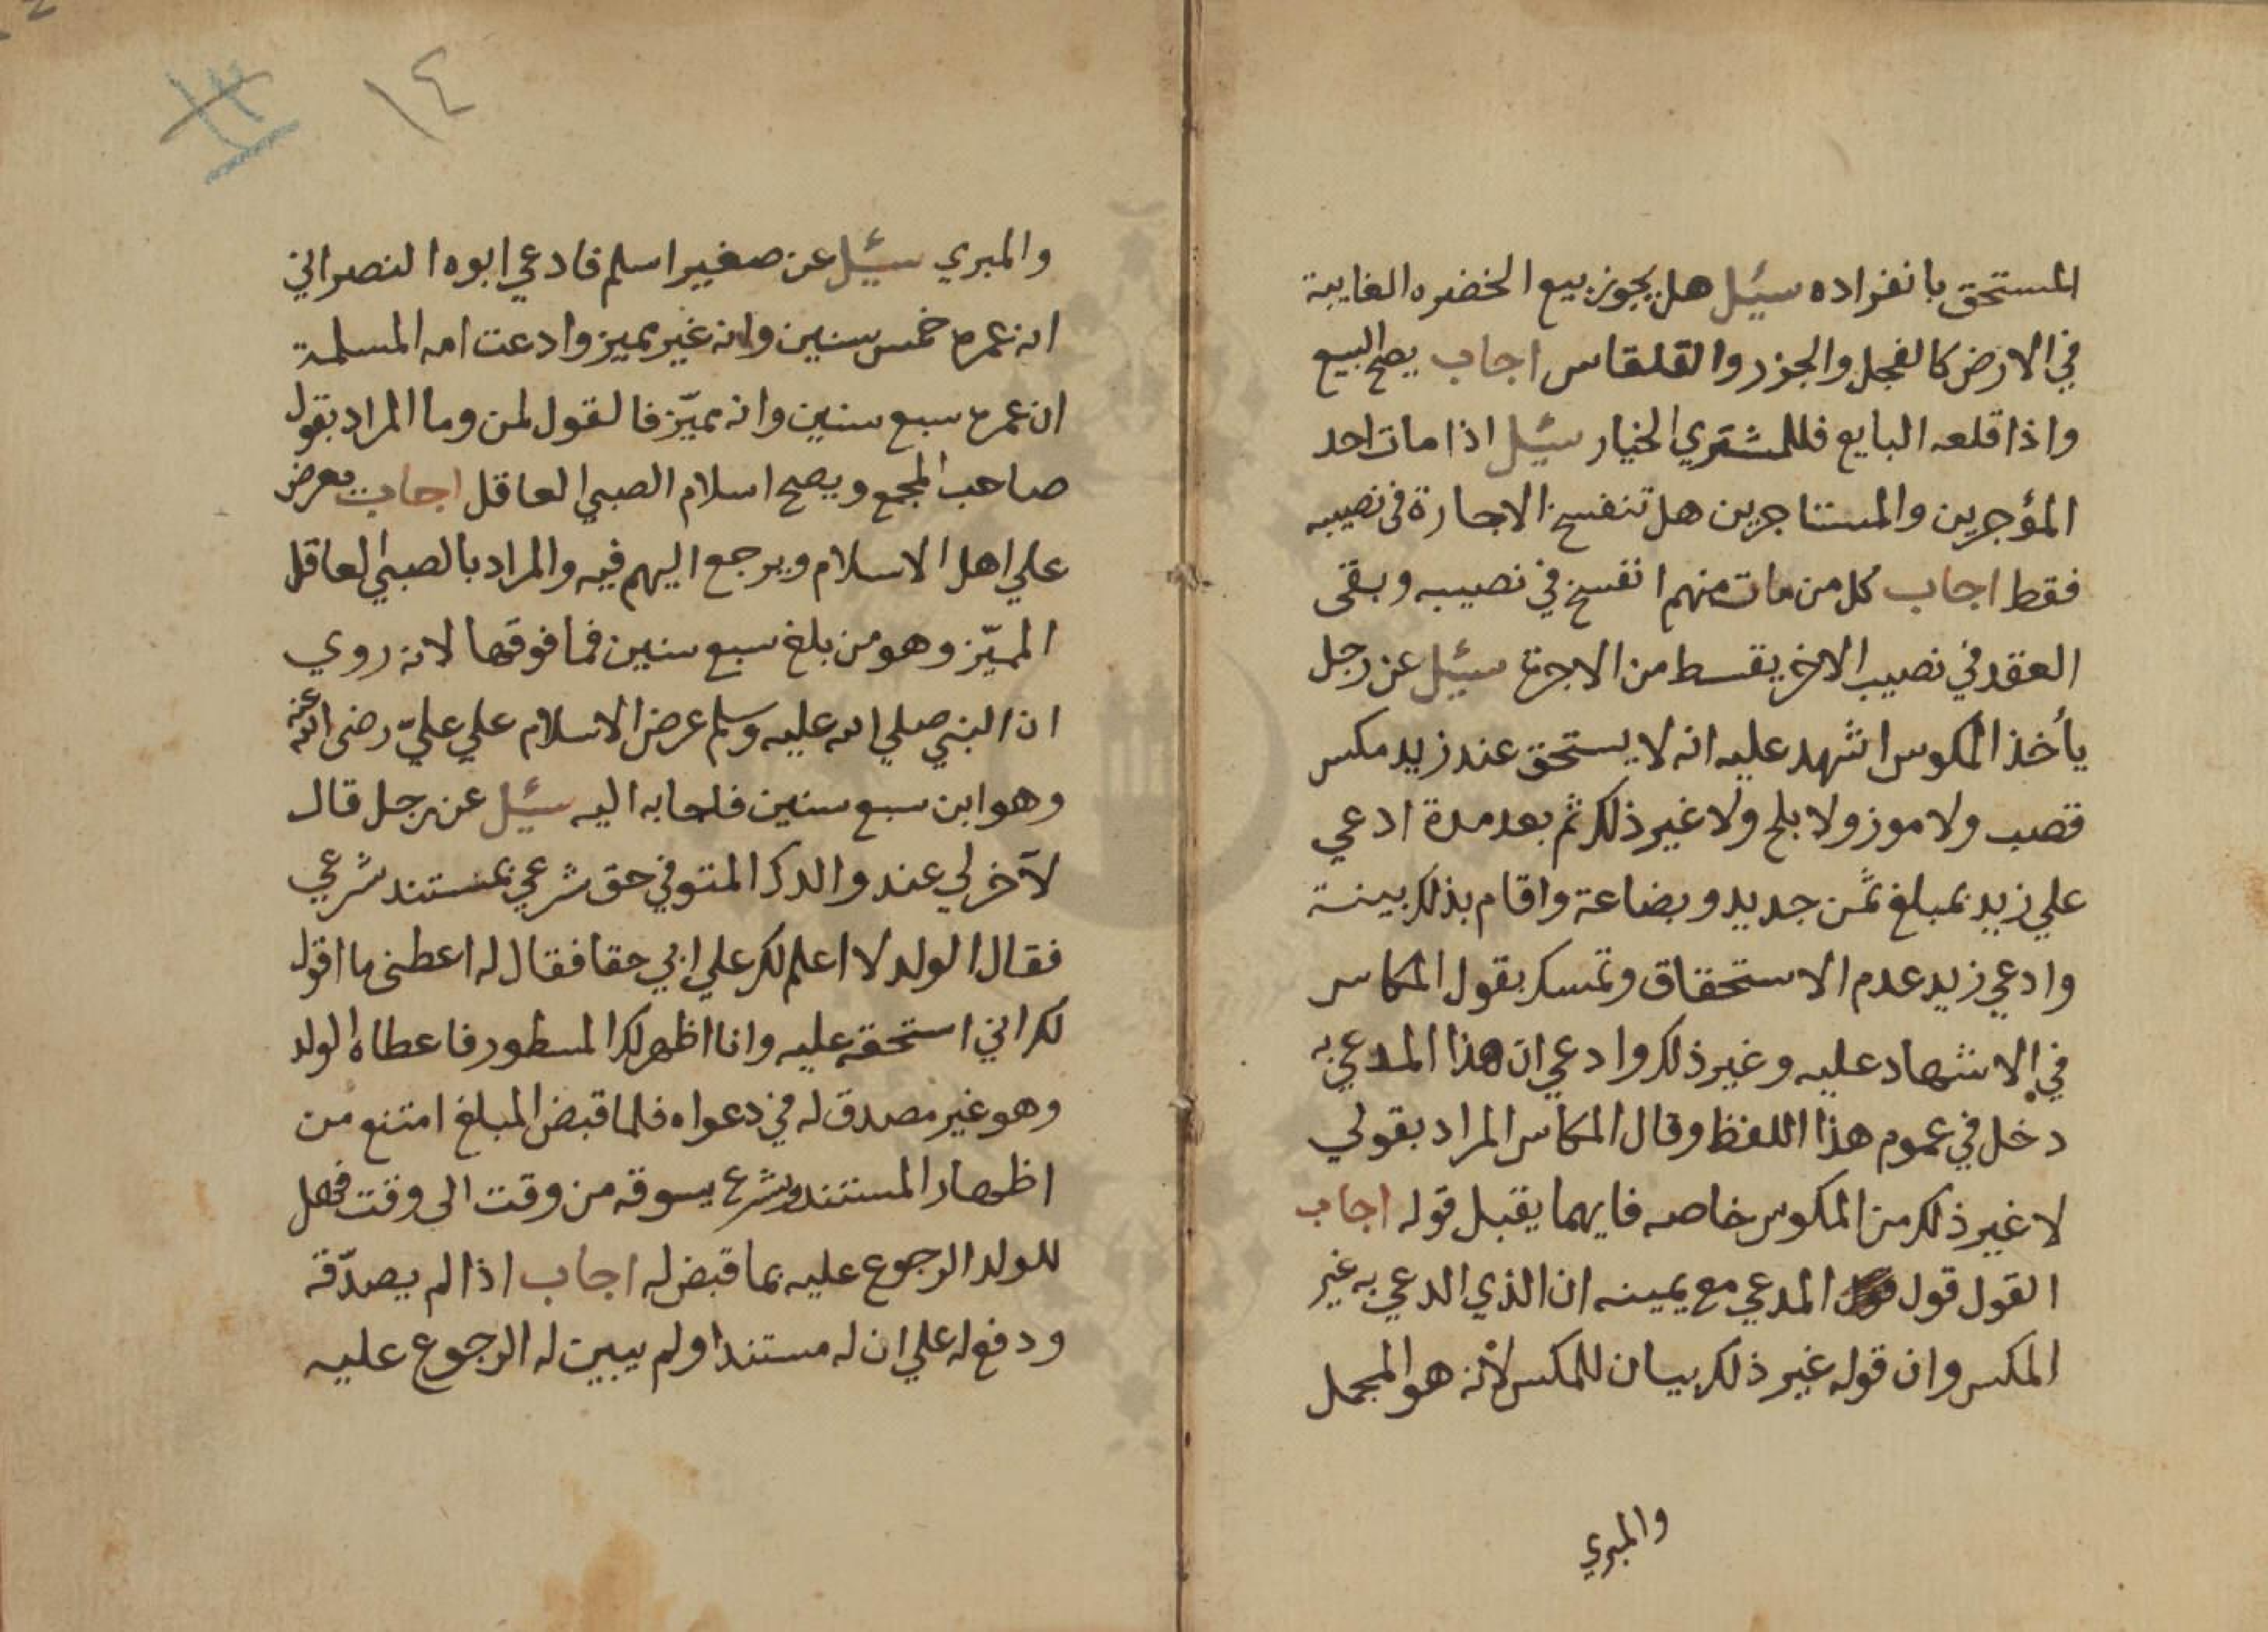 المستحق بانفراده سئل هل يجوز بيع الخضره الغايبة
في الارض كالفجل والجزر والقلقاس اجاب يصح البيع
واذا قلعه البايع فللمشتري الخيار سئل اذا مات احد
المؤجرين والمستاجرين هل تنفسخ الاجارة فى نصيبه
فقط اجاب كل من مات منهم انفسخ في نصيبه وبقى
العقد في نصيب الاخر بقسط من الاجرة سئل عن رجل
يأخذ المكوس اشهد عليه انه لا يستحق عند زيد مكس
قصب ولا موز ولا بلح ولا غير ذلك ثم بعد مدة ادعي
علي زيد بمبلغ ثمن جديد وبضاعة واقام بذلك بينة
وادعي زيد عدم الاستحقاق وتمسك بقول المكاس
في الاشهاد عليه وغير ذلك وادعي ان هذا المدعي به
دخل في عموم هذا اللفظ وقال المكاس المراد بقولي
لا غير ذلك من المكوس خاصه فايهما يقبل قوله اجاب
القول قول المدعي مع يمينه ان الذي ادعي به غير
المكس وان قوله غير ذلك بيان للمكس لأنه هو المجمل
والمبري
١٤
١٣
والمبري سئل عن صغير اسلم فادعي ابوه النصراني
انه عمره خمس سنين وانه غير مميز وادعت امه المسلمة
ان عمره سبع سنين وانه مميّز فالقول لمن وما المراد بقول
صاحب المجمع ويصح اسلام الصبي العاقل اجاب يعرض
علي اهل الاسلام ويرجع اليهم فيه والمراد بالصبي العاقل
المميّز وهو من بلغ سبع سنين فما فوقها لانه روي
ان النبي صلي الله عليه وسلم عرض الاسلام علي عليّ رضى الله عنه
وهو ابن سبع سنين فاجابه اليه سئل عن رجل قال
لآخر لي عند والدك المتوفي حق شرعي بمستند شرعي
فقال الولد لا اعلم لك علي ابي حقا فقال له اعطنى ما اقول
لك اني استحقه عليه وانا اظهر لك المسطور فاعطاه الولد
وهو غير مصدق له في دعواه فلما قبض المبلغ امتنع من
اظهار المستند وشرع يسوقه من وقت الى وقت فهل
للولد الرجوع عليه بما قبض له اجاب اذا لم يصدّقه
ودفع له علي ان له مستندا ولم يبين له الرجوع عليه